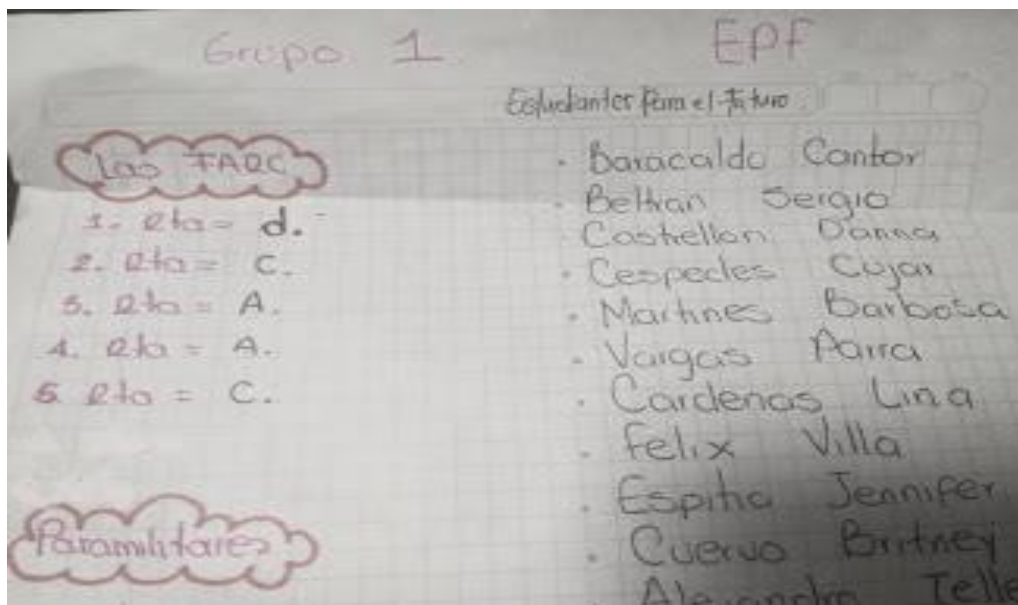 Grupo 1
EPF
Estudiantes Para el Futuro
Las FARC
1. Rta = d.
2. Rta = C.
3. Rta = A.
4. Rta = A.
5 Rta = C.
Paramilitares
· Baracaldo Cantor
· Beltran Sergio
Castellon Danna
· Cespedes Cujar
· Martines Barbosa
· Vargas
· Cardenas Lina
· Felix Villa
· Espitia Jennifer
· Cuervo Britney
Alejandro Telle